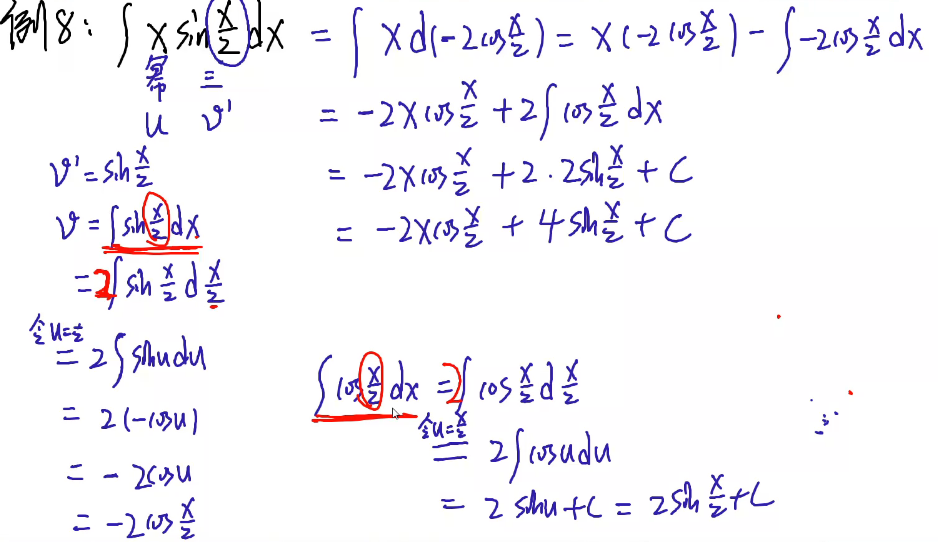 例8: ∫ x sin x/2 dx = ∫ x d(-2cos x/2) = x(-2cos x/2) - ∫ -2cos x/2 dx
幂 三
u v'
= -2x cos x/2 + 2∫ cos x/2 dx
= -2x cos x/2 + 2·2sin x/2 + C
= -2x cos x/2 + 4sin x/2 + C
v' = sin x/2
v = ∫ sin x/2 dx
= 2∫ sin x/2 d x/2
令u=x/2
= 2∫ sinu du
= 2(-cosu)
= -2cosu
= -2cos x/2
∫ cos x/2 dx = 2∫ cos x/2 d x/2
令u=x/2
= 2∫ cosu du
= 2sinu + C = 2sin x/2 + C